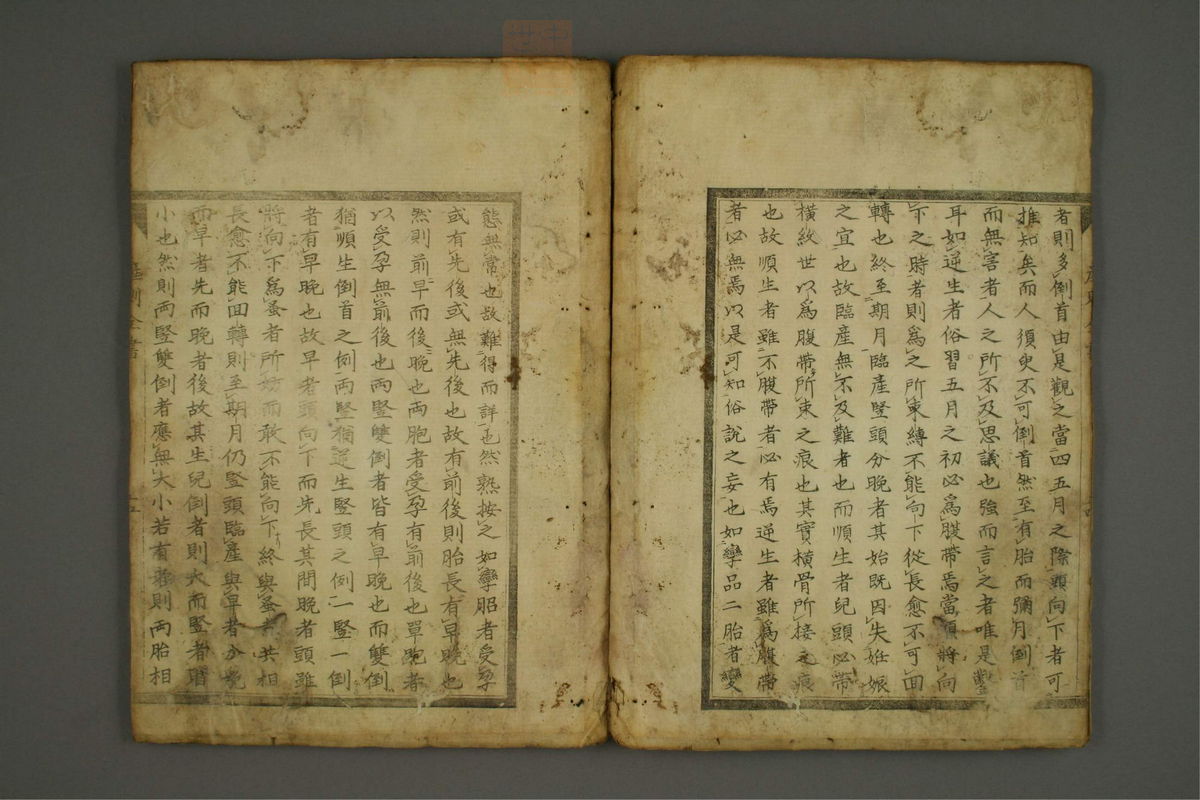 者則多倒首由是觀之當四五月之際頭向下者可
推知矣而人須臾不可倒首然至有胎而彌月倒首
而無害者人之所不及思議也強而言之者唯是
耳如逆生者俗習五月之初必爲腹帶焉當頭將向
下之時者則爲之所束縛不能向下從長愈不可回
轉也終至期月臨產竪頭分晚者其始既因失妊娠
之宜也故臨產無不及難者也而順生者兒頭必帶
橫紋世以爲腹帶所束之痕也其實橫骨所接之痕
也故順生者雖不腹帶者必有焉逆生者雖爲腹帶
者必無焉以是可知俗說之妄也如孿品二胎者變
態無常也故難得而詳也然熟按之如孿胎者受孕
或有先後或無先後也故有前後則胎長有早晚也
然則前早而後晚也両胞者受孕有前後也單胞者
以受孕無前後也両竪雙倒者皆有早晚也而雙倒
猶順生倒首之例両竪猶逆生竪頭之例一竪一倒
者有早晚也故早者頭向下而先長其間晚者頭雖
將向下爲蚤者所妨而敢不能向下終與蚤者共相
長愈不能回轉則至期月仍竪頭臨產與早者分晚
而早者先而晚者後故其生兒倒者則大而竪者
小也然則両竪雙倒者應無大小若有者則両胎相